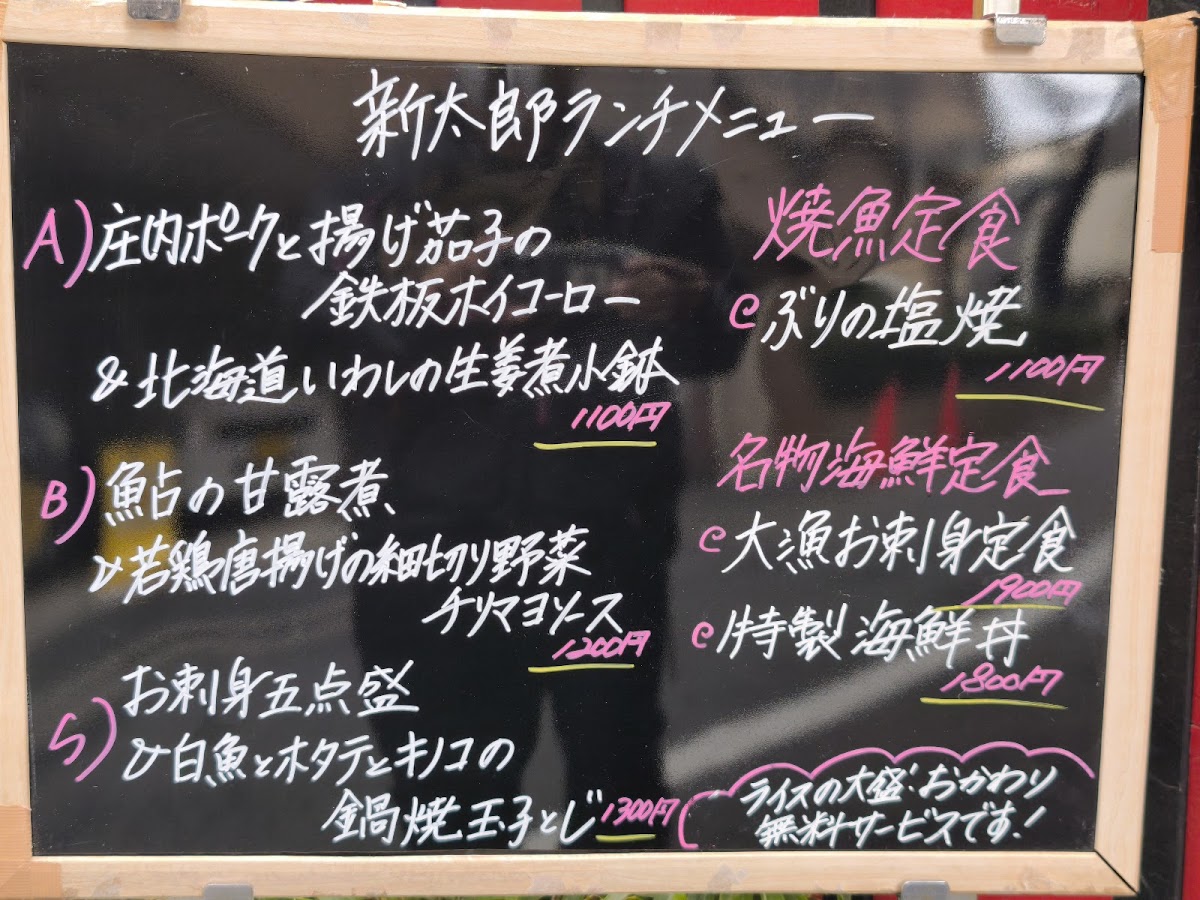 新太郎ランチメニュー
A) 庄内ポークと揚げ茄子の
鉄板ホイコーロー
& 北海道いわしの生姜煮小鉢
1100円
B) 鮎の甘露煮
& 若鶏唐揚げの細切り野菜
チリマヨソース
1200円
S) お刺身五点盛
& 白魚とホタテとキノコの
鍋焼玉子とじ 1300円
焼魚定食
ぶりの塩焼
1100円
名物海鮮定食
大漁お刺身定食
1900円
特製海鮮丼
1800円
ライスの大盛・おかわり
無料サービスです!